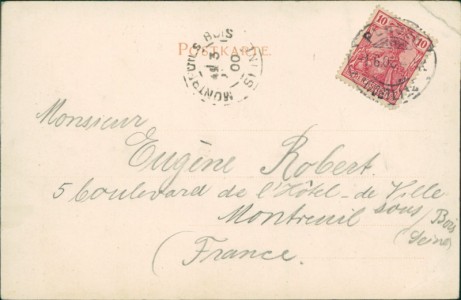 POSTKARTE
MONTREUIL S. BOIS
10 10
Monsieur
Eugène Robert.
5 boulevard de l'Hôtel-de Ville
Montreuil sous Bois
(Seine)
(France.)